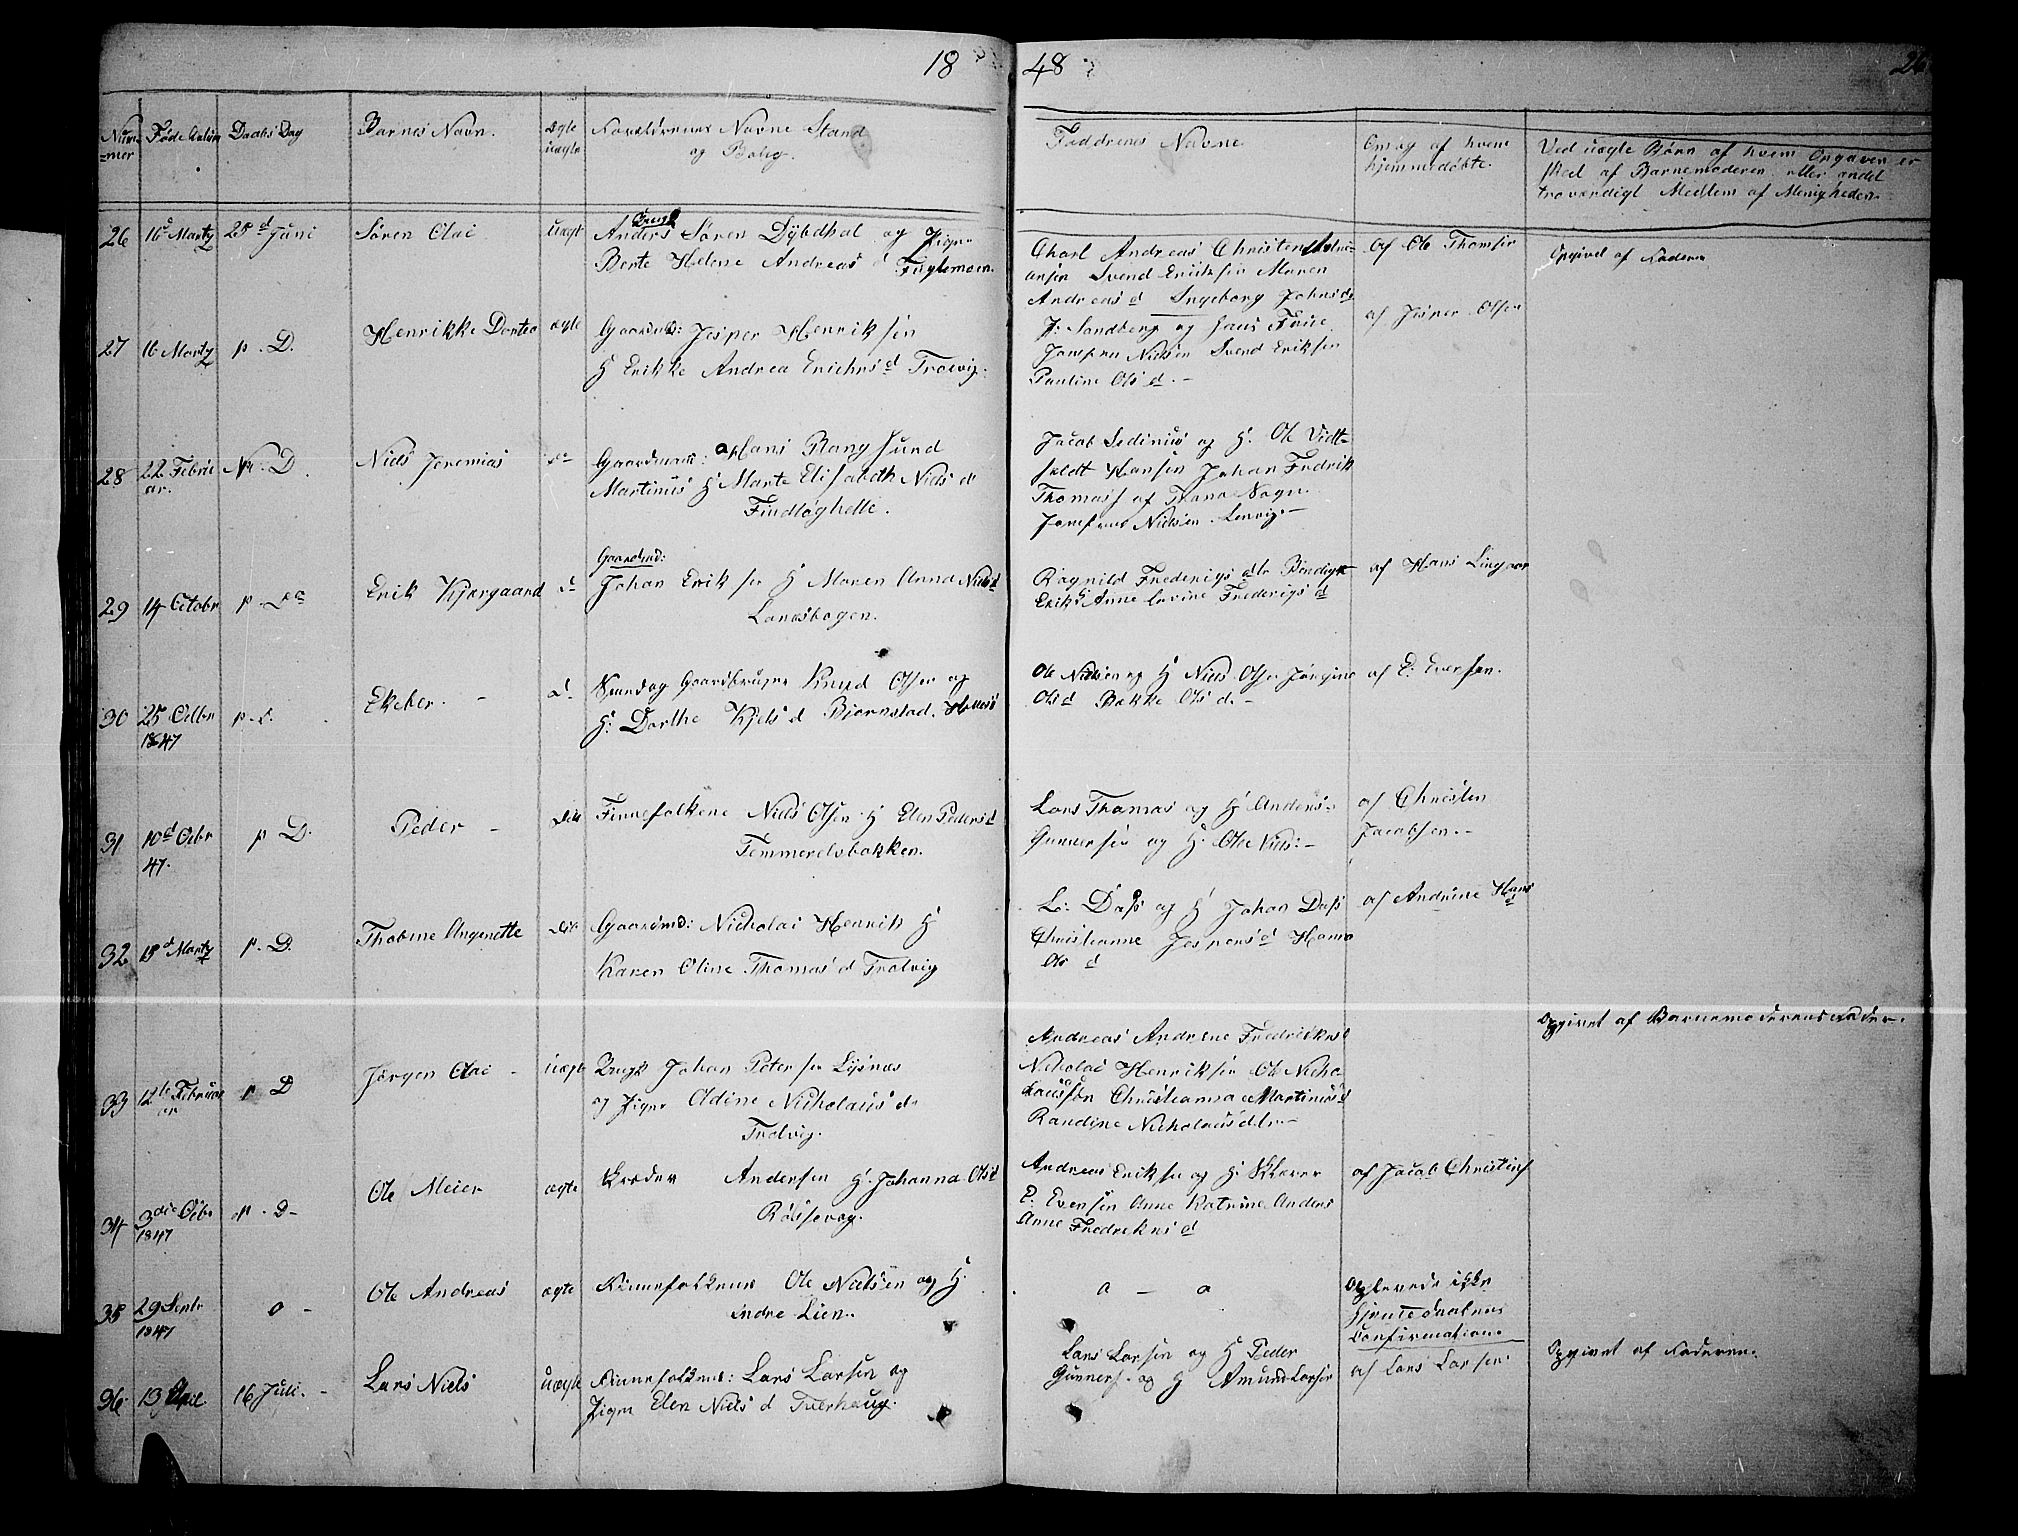 18 48 26
Num-mer Føde Datum Daabs Dag Barnes Navn. Ægte uægte Forældrenes Navne Stand og Bolig. Faddrenes Navne Om og af hvem hjemmedøbte. Ved uægte Børn af hvem Opgaven er skeet af Barnemoderen eller andet troværdigt Medlem af Menigheden
26 16 Marty 25d Juni Søren Olai Uægt Ungk
Anders Søren Dybdhal og Pigen
Berte Helene Andreas d Fuglemoen.
Charl Andreas Christen
Svend Eriksen Maren
Andreas d Ingeborg Johns d
af Ole Thomsen
Opgivet af Faderen
27 16 Marty p. D. Henrikke Dortea ægte Gaardmd: Jesper Henriksen
H Erikke Andrea Erichs d Trolvig.
P: Sandberg og hans Frue
Jomfrue Nielsen Svend Eriksen
Pauline Ols d. -
af Jesper Olsen
28 22 Febru ar. D. Niels Jeremias do Gaardmand: Hans Rangsund
Martinus H Marte Elisabeth Niels d
Findløghelle.
Jacob Sedinius og H. Ole Vidt-
feldt Hansen Johan Fredrik
Thomas af Trano Sogn.
Jomfrue Nielsen. Lenvig. -
29 14 Octobr p. D Erik Kjærgaard d Gaardmd:
Johan Eriksen H Maren Anna Niels d
Lanesbogen.
Ragnild Frederigs dtr Bendigte
Eriks Anne Lovine Frederigs d
af Hans Lingaar
30 25 Octbr 1847 p. d. Ekeber - d. Qvindag Gaardbruger Knud Olsen og
H: Dorthe Kjels d Bjørnstad.
Ole Nielsen og H Niels Olsen Jørgine
Ols d Bekke Ols d. -
af E: Eversen.
31 10d Octbr 47. p D. Peder - Dito Finnefolkene Niels Olsen H Elen Peders d
Temmerelvbakken.
Lars Thomas og H Anders-
Gunnersen og H. Ole Niels: -
af Christen
Jacobsen. -
32 15d Marty p. D. Thobine Angenette Dito Gaardmd: Nicholai Henrik H
Karen Oline Thomas d Trolvig
L: Dass og H Johan Dass
Christianne Jespers d Hanna
Ols d
af Andrine Hans d
33 12te Februar p D Jørgen Olai - uægte Ungk Johan Petersen Lysnes
og Pigen Odine Nicholaus d.
Trolvig.
Andreas Andrene Fredriks d
Nicholai Henriksen Ole Nicho
laussøn Christianna Martinus d
Randine Nicholaus dtr. -
Opgivet af Barnemoderens Fader.
34 3die Octbr 1847 p. D- Ole Meier ægte Andersen H. Johanna Ols d
Røssevog.
Andreas Eriksen og H
E. Evensen Anne Katrine Anders
Anne Fredriks d
af Jacob Christens
35 29 Septr 1847 o - Ole Andreas ægte Finnefolkene Ole Nielsen og H.
indre Lien.
o - o
Oplevede ikke
Hjemmedaabens
Confirmation.
36 13 April 16 Juli. - Lars Niels uægte Finnefolkene: Lars Larsen og
Pigen Elen Niels d Tverhaug.
Lars Larsen og H Peder
Gunners. og H Amund Larsen
af Lars Larsen
Opgivet af Faderen.